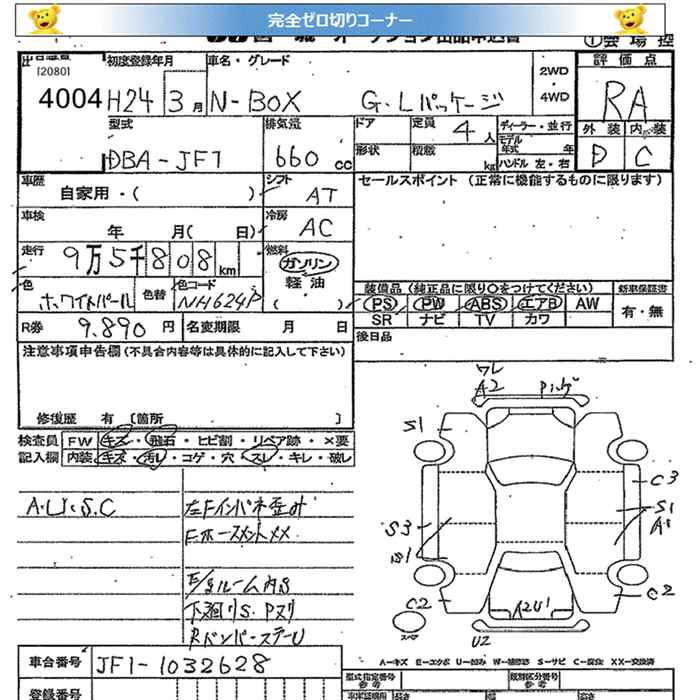 完全ゼロ切りコーナー
[2080]
4004
初度登録年月
H24 3月
車名・グレード
N-BOX G・Lパッケージ
2WD
4WD
評価点
RA
外装 内装
D C
型式
DBA-JF1
排気量
660 cc
ドア
形状
定員
4人
積載
kg
ディーラー・並行
モデル年式 年
ハンドル 左・右
車歴
自家用・( )
シフト
AT
セールスポイント (正常に機能するものに限ります)
車検
年 月( 日)
冷房
AC
走行
9万5千808km
燃料
ガソリン
軽油
( )
色
ホワイトパール
色替
色コード
NH624P
装備品 (純正品に限り〇をつけてください)
新車保証書
PS PW ABS エアB AW
SR ナビ TV カワ
有・無
R券 9.890円
名変期限 月 日
後日品
注意事項申告欄(不具合内容等は具体的に記入して下さい)
修復歴 有 [箇所 ]
検査員
記入欄
FW キズ・飛石・ヒビ割・リペア跡・×要
内装 キズ・汚レ・コゲ・穴・スレ・キレ・破レ
A.U.S.C
左Fインパネ歪み
Fホースメント××
E/gルーム内S
下廻りS.Pスリ
ワレ
A2
S1
C3
S1
A1
S3
B1
C2
C2
U2
スペア
A-キズ E-エクボ U-凹み W-補修跡 S-サビ C-腐食 XX-交換済
車台番号 JF1-1032628
登録番号
型式指定番号
参考
類別区分番号
参考